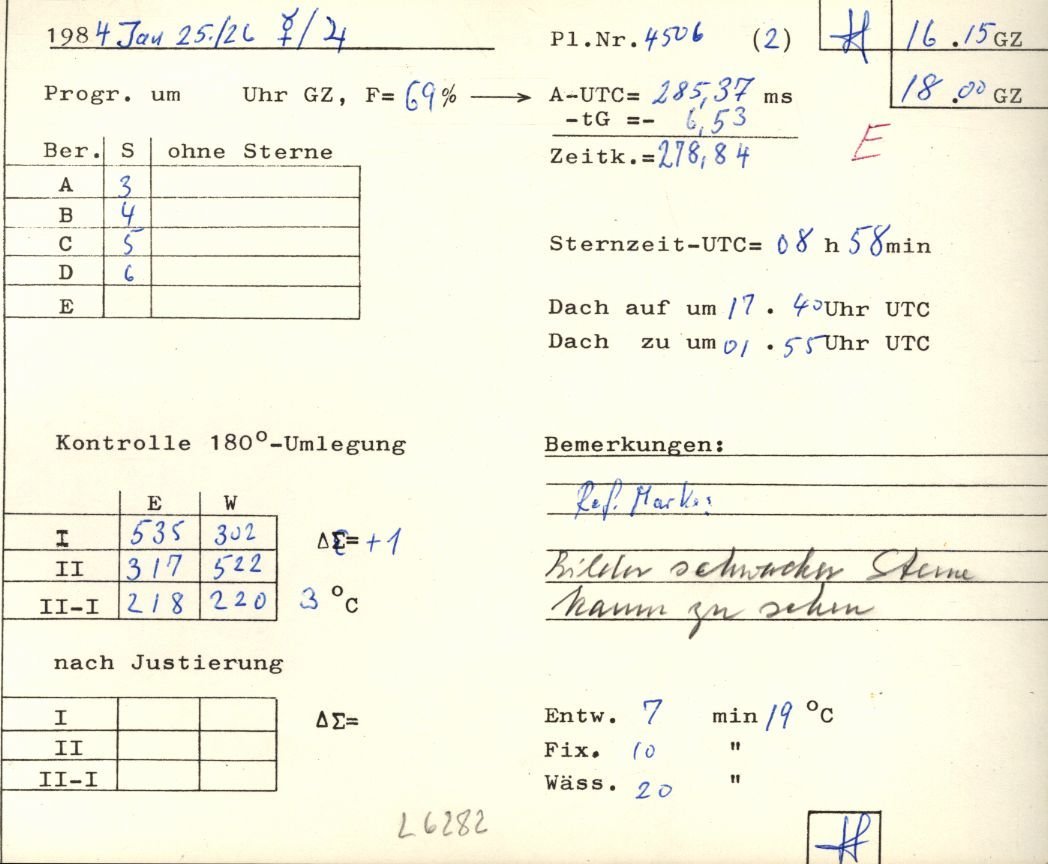 1984 Jan 25./26 ☿/♃
Pl.Nr. 4506 (2)
16.15 GZ
18.00 GZ
Progr. um Uhr GZ, F= 69% → A-UTC= 285,37 ms
-tG =- 6,53
Zeitk.= 278,84
E
Ber. S ohne Sterne
A 3
B 4
C 5
D 6
E
Sternzeit-UTC= 08 h 58 min
Dach auf um 17.40 Uhr UTC
Dach zu um 01.55 Uhr UTC
Kontrolle 180°-Umlegung
E W
I 535 302 ΔΣ= +1
II 317 522
II-I 218 220 3 °C
Bemerkungen:
Ref. Mark.:
Bilder schwacher Sterne
kaum zu sehen
nach Justierung
I ΔΣ=
II
II-I
Entw. 7 min 19 °C
Fix. 10 "
Wäss. 20 "
L6282